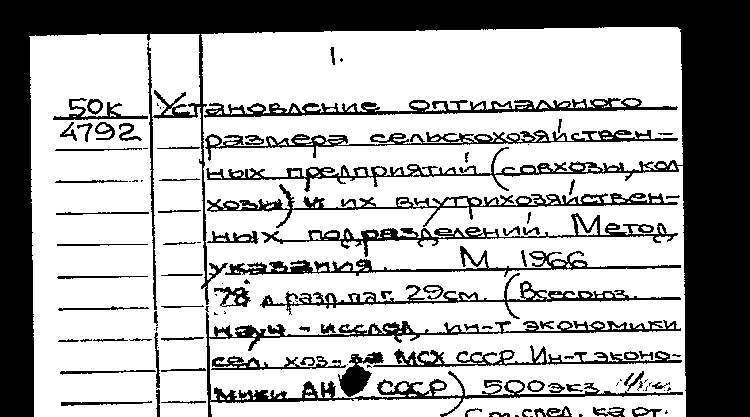 1.
50к Установление оптимального
4792 размера сельскохозяйствен-
ных предприятий (совхозы, кол
хозы) и их внутрихозяйствен-
ных подразделений. Метод.
указания. М., 1966
78 л. разд. паг. 29см. (Всесоюз.
науч-исслед. ин-т экономики
сел. хоз-ва МСХ СССР. Ин-т эконо-
мики АН СССР) 500экз.
См. след. карт.